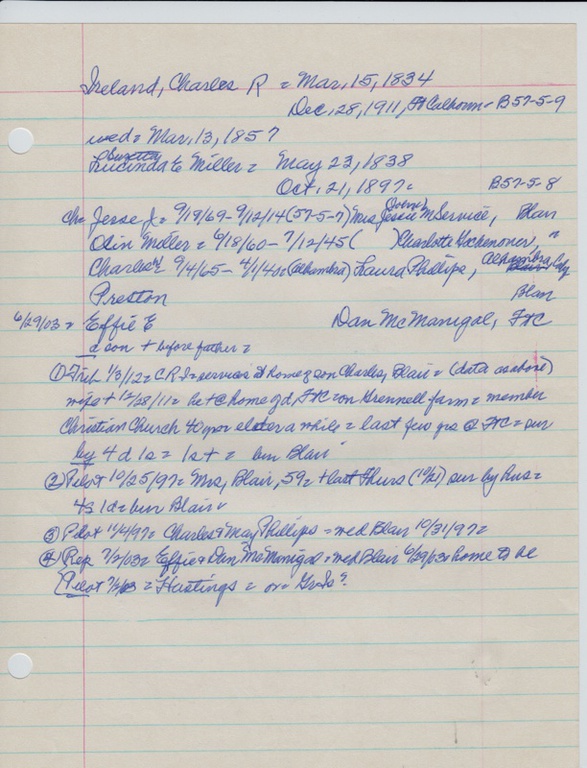 Ireland, Charles R = Mar. 15, 1834
Dec. 28, 1911, Ft Calhoun - B57-5-9
wed = Mar. 13, 1857
Lucinda E Miller = May 23, 1838
Oct. 21, 1897 = B57-5-8
ch = Jesse J = 9/19/69 - 9/12/14 (57-5-7) Mrs Jessie M Service, Blair
Olin Miller = 6/18/60 - 7/12/45 ( ) Charlotte Gochenouer, "
Charles 9/4/65 - (Alhambra) Laura Phillips, Alhambra
Preston Blair
6/29/03 = Effie E Dan McManigal, FtC
a son + before father =
① Trib 1/3/12 = C.R.I = services @ home of son Charles, Blair = (data as above)
wife + 12/28/11 = he + @ home of d, FtC = on Grennell farm = member
Christian Church 40 yrs elder a while = last few yrs @ FtC = sur
by 4 d 1 s = 1 s + = bur Blair
② Pilot 10/25/97 = Mrs, Blair, 59 = + last Thurs (10/21) sur by hus =
4s 1d = bur Blair
③ Pilot 11/4/97 = Charles & May Phillips = wed Blair 10/31/97 =
④ Rep 7/2/03 = Effie & Dan McManigal = wed Blair 6/29/03 = home to be
(Pilot = Hastings = or = Gr Is?